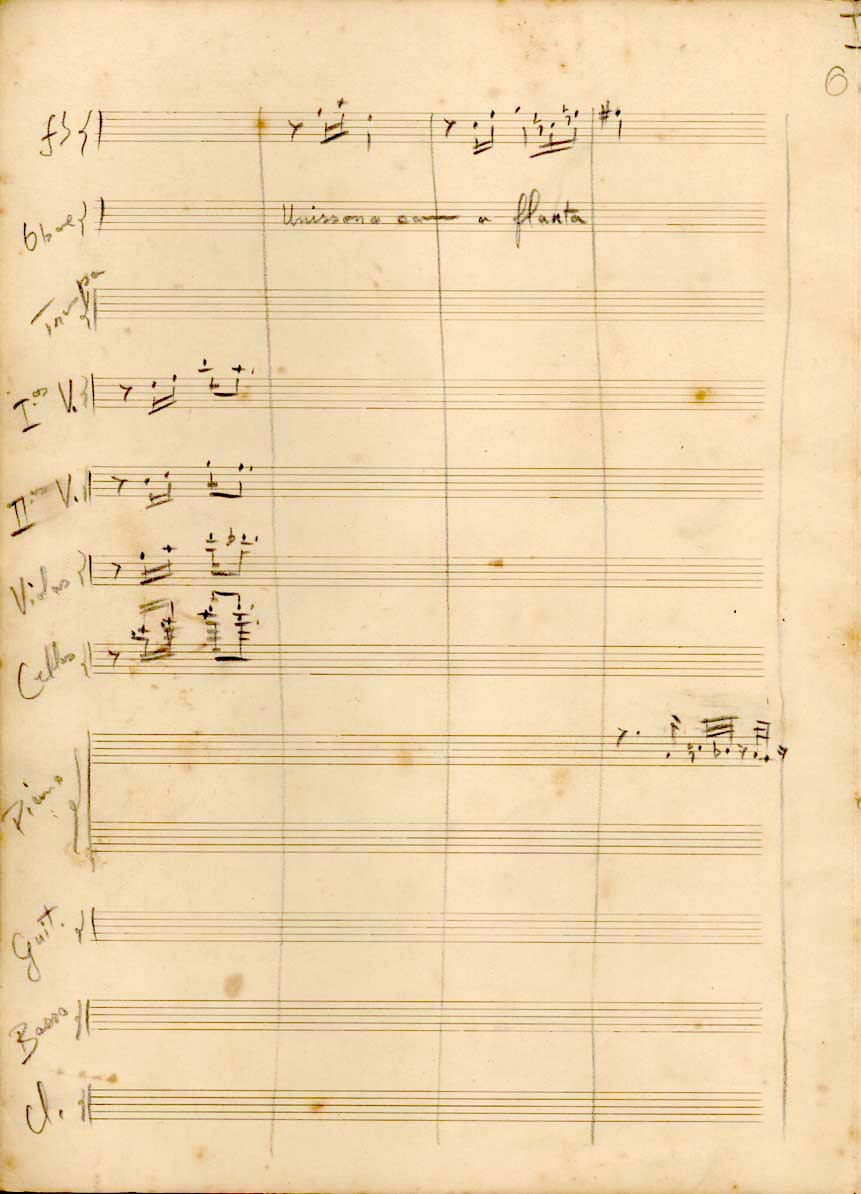 I
6
fl
Oboe
Unissono com a flauta
Trompa
I.os V.
II.os V.
Violas
Cellos
Piano
Guit.
Basso
cl.